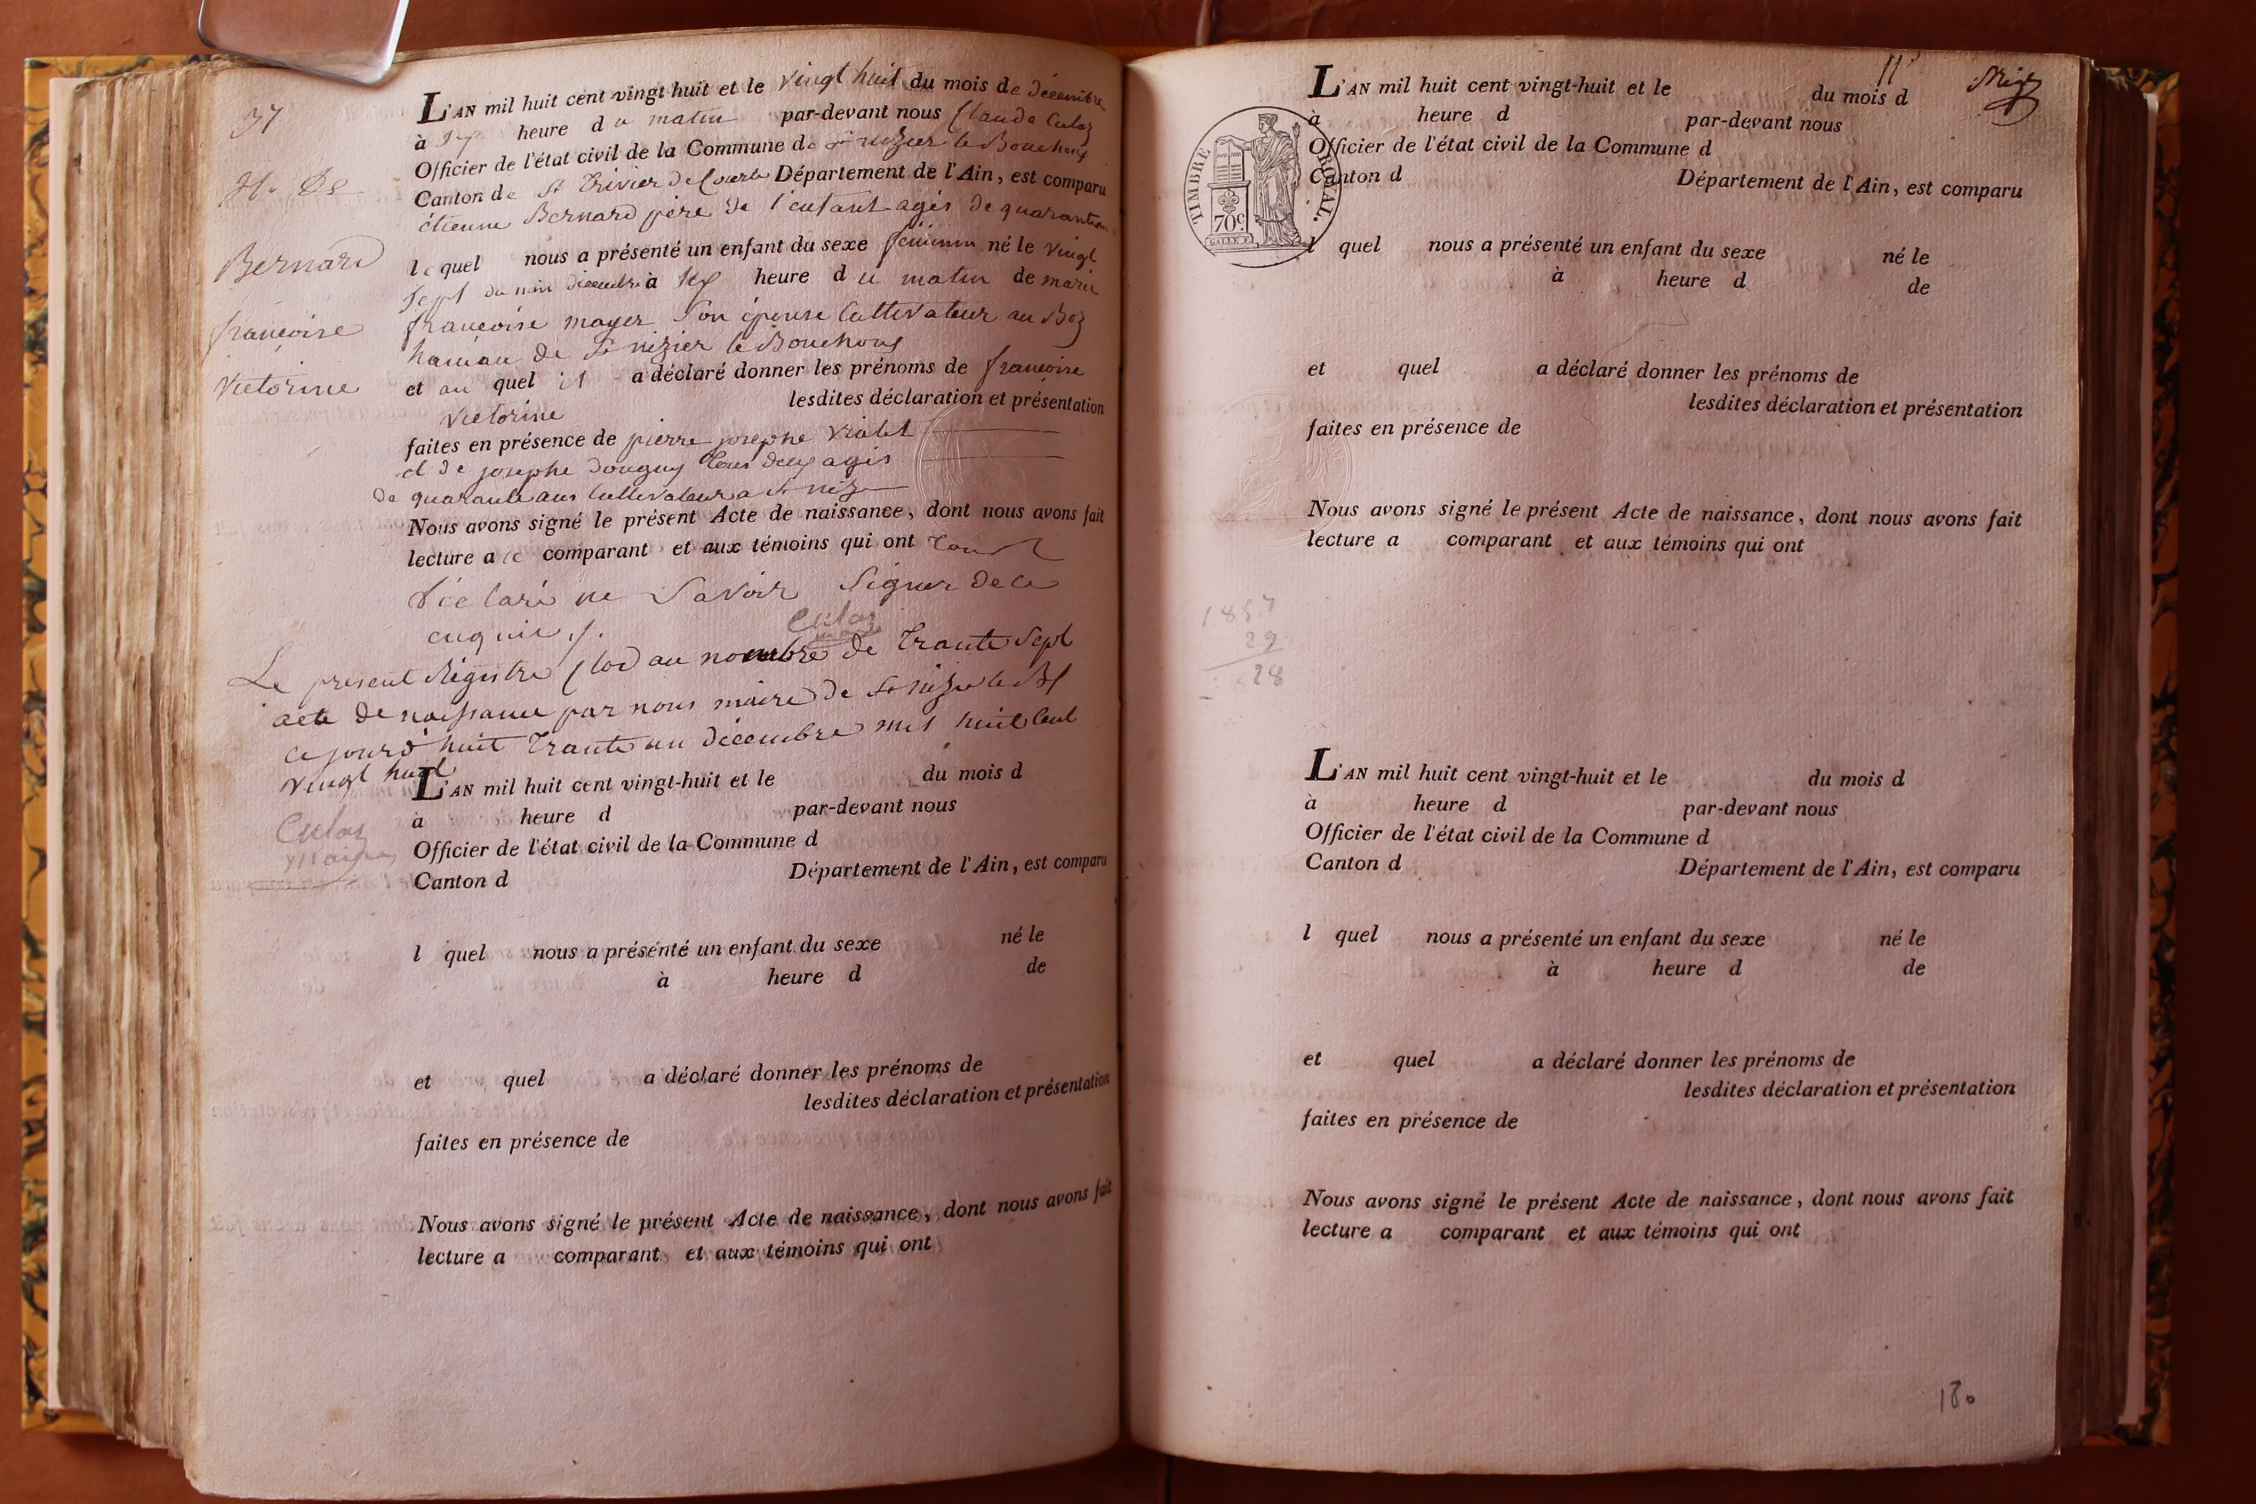 37
Bernard
françoise
victorine
L'AN mil huit cent vingt-huit et le vingt huit du mois de décembre
à heure du matin par-devant nous Claude Culaz
Officier de l'état civil de la Commune de st nizier le Bouchoux
Canton de st Trivier de Courte Département de l'Ain, est comparu
étienne Bernard père de l'enfant agés de quarante
lequel nous a présenté un enfant du sexe féminin né le vingt
sept du mois décembre à heure du matin de marie
françoise moyer son épouse Cultivateur au Boz
hamau de St nizier le Bouchoux
et au quel il a déclaré donner les prénoms de françoise
victorine lesdites déclaration et présentation
faites en présence de pierre josephe violet
et de josephe douguy tous deux agés
de quarante ans Cultivateur a st niz
Nous avons signé le présent Acte de naissance, dont nous avons fait
lecture a le comparant et aux témoins qui ont
déclaré ne savoir signer de ce
enquis
Culaz
Le present Registre Clod au nombre de trante sept
acte de naissance par nous maire de st nizier le
ce jourd'huit trante un décembre mil huit Cent
vingt huit
Culaz
maire
L'AN mil huit cent vingt-huit et le du mois d
à heure d par-devant nous
Officier de l'état civil de la Commune d
Canton d Département de l'Ain, est comparu
l quel nous a présenté un enfant du sexe né le
à heure d de
et quel a déclaré donner les prénoms de
lesdites déclaration et présentation
faites en présence de
Nous avons signé le présent Acte de naissance, dont nous avons fait
lecture a comparant et aux témoins qui ont
L'AN mil huit cent vingt-huit et le du mois d
à heure d par-devant nous
Officier de l'état civil de la Commune d
Canton d Département de l'Ain, est comparu
TIMBRE ROYAL.
70c
l quel nous a présenté un enfant du sexe né le
à heure d de
et quel a déclaré donner les prénoms de
lesdites déclaration et présentation
faites en présence de
Nous avons signé le présent Acte de naissance, dont nous avons fait
lecture a comparant et aux témoins qui ont
1857
29
28
L'AN mil huit cent vingt-huit et le du mois d
à heure d par-devant nous
Officier de l'état civil de la Commune d
Canton d Département de l'Ain, est comparu
l quel nous a présenté un enfant du sexe né le
à heure d de
et quel a déclaré donner les prénoms de
lesdites déclaration et présentation
faites en présence de
Nous avons signé le présent Acte de naissance, dont nous avons fait
lecture a comparant et aux témoins qui ont
180